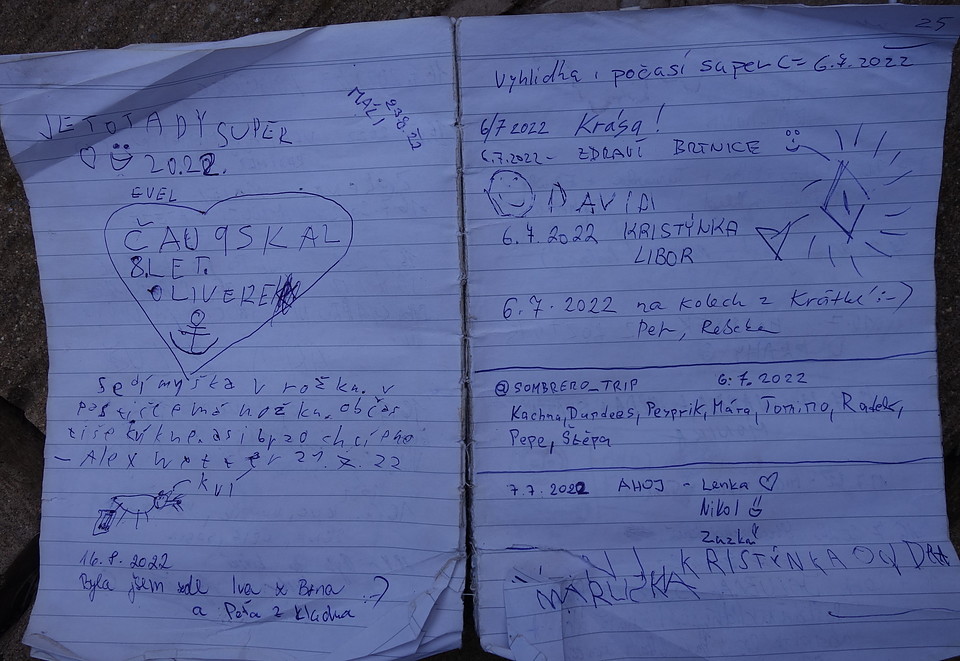 JE TO TADY SUPER
2022.
MÁŤI
EVEL
ČAU 9SKAL
8.LET.
OLIVERE
Sedí myška v rožku. v
pastiš se má nožku. občas
tiše kníkne. asi brzo chcípne
- Alex
21. 7. 22
KVÍ
16.8.2022
Byla jsem zde Iva z Brna :-)
a Peťa z Kladna
25
Vyhlídka i počasí super C= 6.7.2022
6/7 2022 Krása!
6.7.2022 - ZDRAVÍ BRTNICE
6.7.2022 KRISTÝNKA
LIBOR
6.7.2022 na kolech z Krátké :-)
Petr, Rebeka
@SOMBRERO_TRIP 6.7.2022
Kachna, Dundees, Pexprik, Mára, Tomino, Radek,
Pepe, Štěpa
7.7.2022 AHOJ - Lenka
Nikol
Zuzka
KRISTÝNKA OD
MARUŠKA